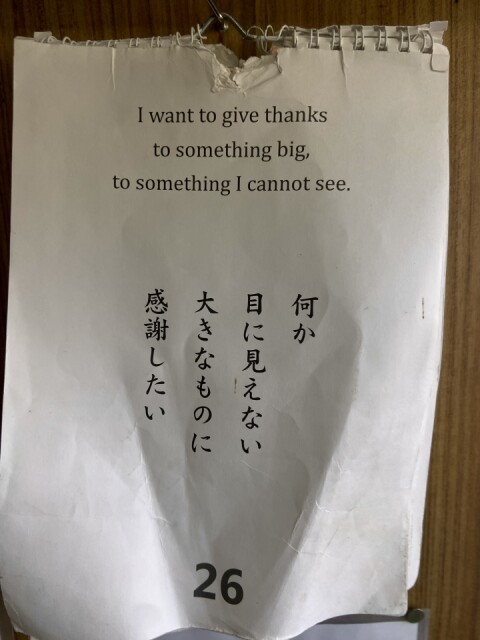 I want to give thanks
to something big,
to something I cannot see.
何か
目に見えない
大きなものに
感謝したい
26